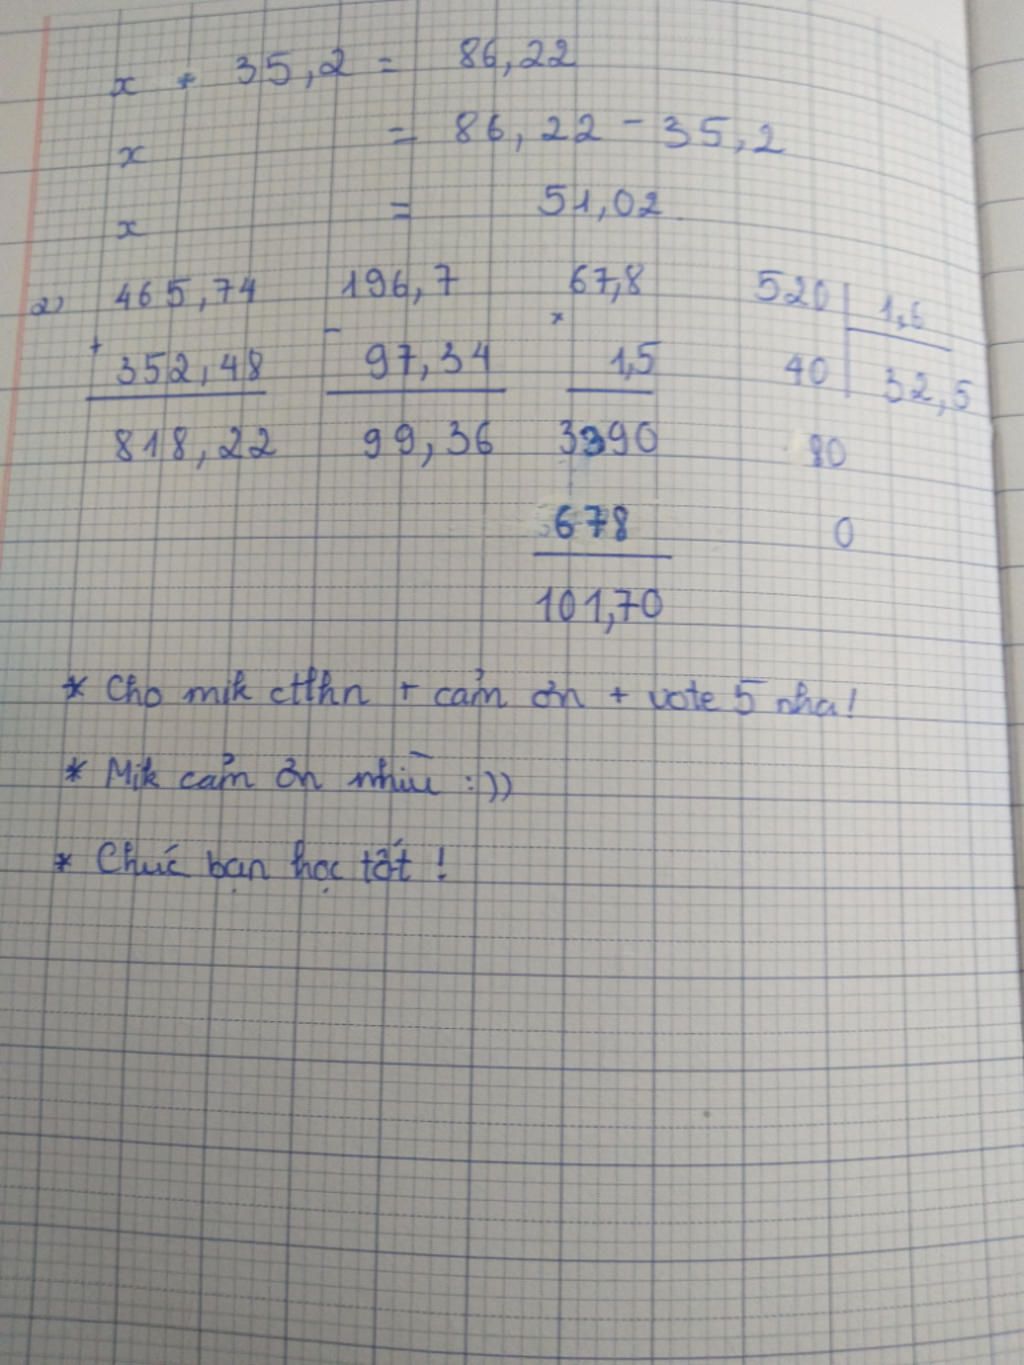 x + 35,2 = 86,22
x = 86,22 - 35,2
x = 51,02
2) 465,74 196,7 67,8 520 1,6
+ - ×
352,48 97,34 1,5 40 32,5
818,22 99,36 3390 80
678 0
101,70
* Cho mik ctlhn + cảm ơn + vote 5 nha!
* Mik cảm ơn nhìu :))
* Chúc bạn học tốt !